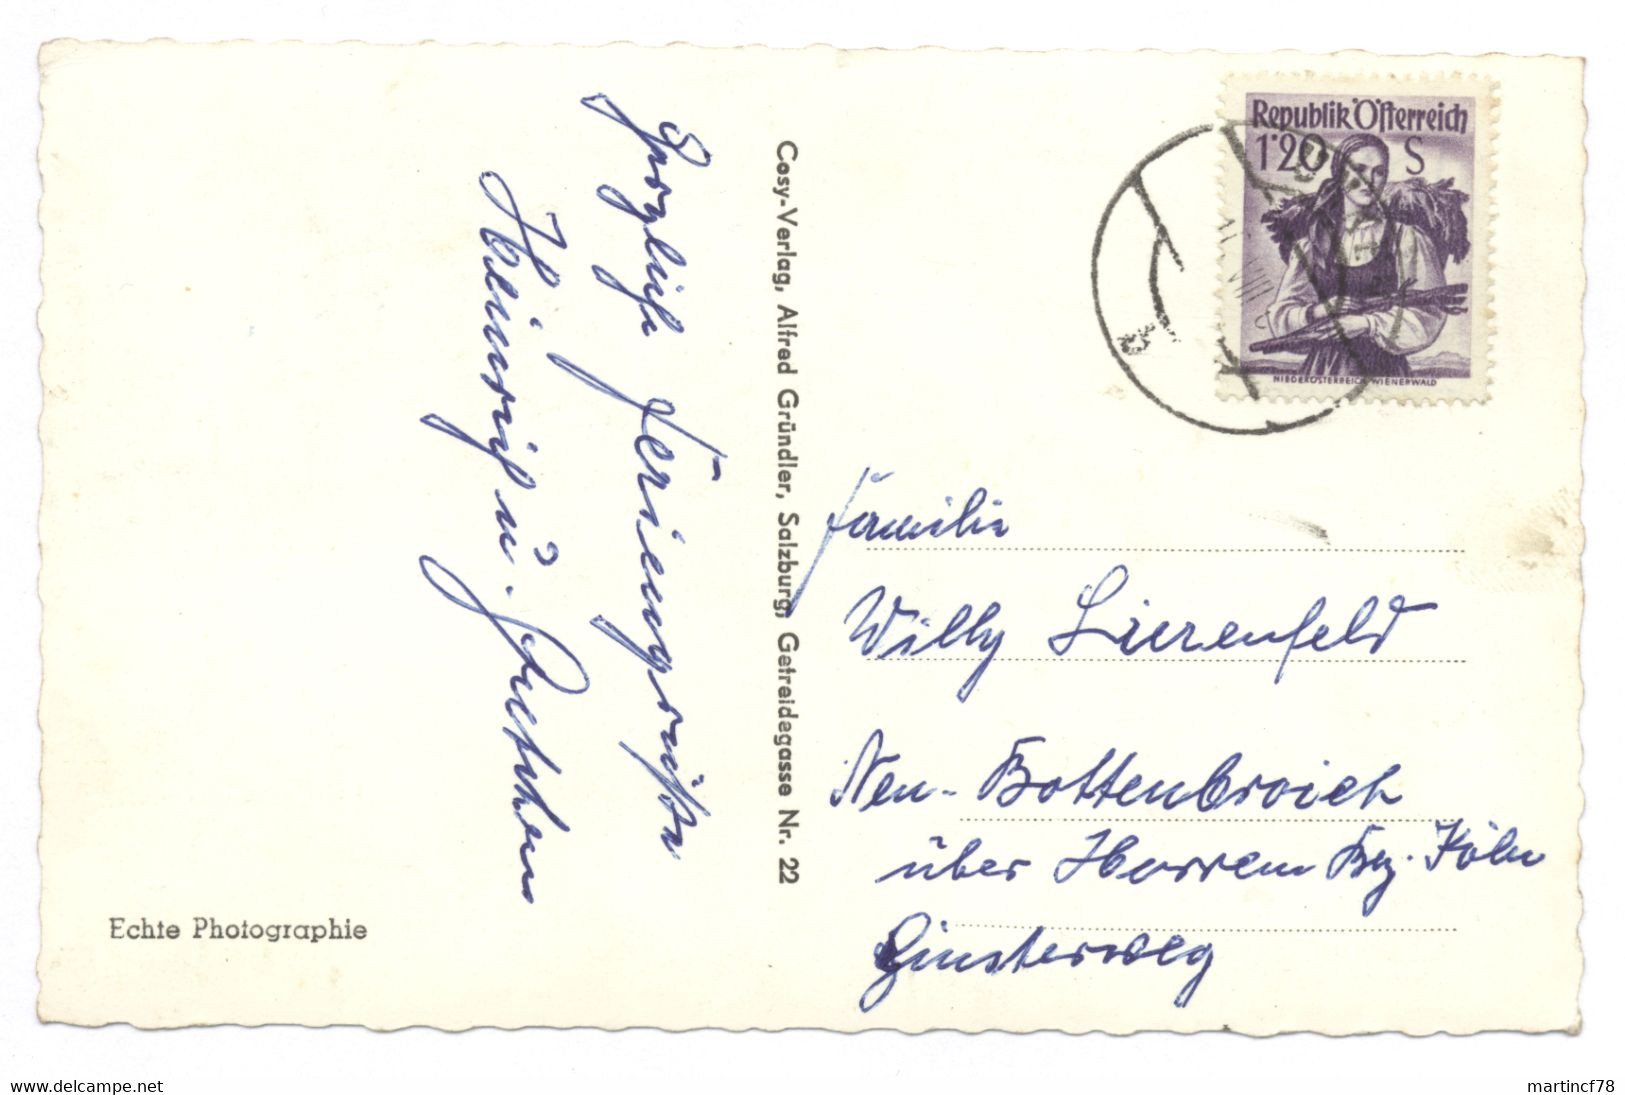 Herzliche Feriengrüße
Heinrich u.
Cosy-Verlag, Alfred Gründler, Salzburg, Getreidegasse Nr. 22
Echte Photographie
Republik Österreich
1·20 S
NIEDERÖSTERREICH, WIENERWALD
Familie
Willy Lierenfeld
Neu-Bottenbroich
über Horrem Bz. Köln
Ginsterweg
www.delcampe.net
martincf78